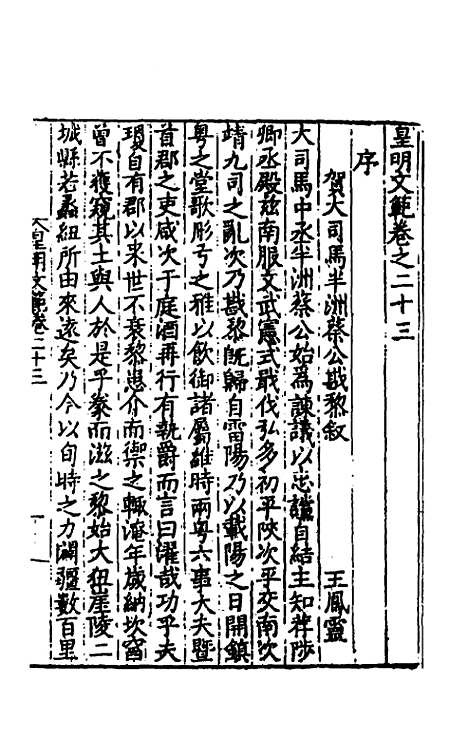 皇明文範卷之二十三
序
賀大司馬半洲蔡公戡黎叙 王鳳靈
大司馬中丞半洲蔡公始爲諫議以忠讜自結主知荐陟
卿丞殿玆南服文武憲式戢伐弘多初平陜次平交南次
靖九司之亂次乃戡黎旣歸自雷陽乃以載陽之日開鎮
粤之堂歌彤弓之雅以飲御諸屬維時兩粤六事大夫曁
首郡之吏咸次于庭酒再行有執爵而言曰濯哉功乎夫
瓊自有郡以來世不衰黎患介而禦之輒淹年歲納坎窞
曾不獲窺其土與人於是乎拳而滋之黎始大狃崖陵二
城縣若蝨紐所由來遠矣乃今以旬時之力闢疆數百里
皇明文範卷二十三 一